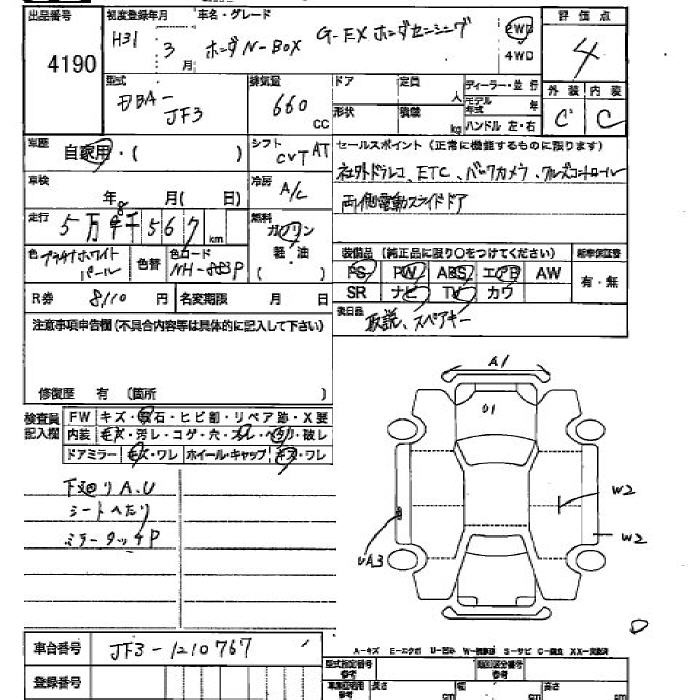 出品番号 4190
初度登録年月 H31 3月
車名・グレード ホンダ N-BOX G-EX ホンダセンシング
2WD
4WD
評価点 4
外装 C
内装 C
型式 DBA-
JF3
排気量 660 cc
ドア 定員 人
形状 積載 kg
ディーラー・並行
モデル年式 年
ハンドル 左・右
車歴 自家用・( )
シフト CVT AT
車検 年 月( 日)
冷房 A/C
走行 5万 567 km
燃料 ガソリン
軽・油
( )
色 プラチナホワイト
パール
色替
色コード NH-883P
R券 8110円
名変期限 月 日
セールスポイント(正常に機能するものに限ります)
社外ドラレコ、ETC、バックカメラ、クルーズコントロール
両側電動スライドドア
装備品(純正品に限り○をつけてください)
新車保証書 有・無
PS PW ABS エアB AW
SR ナビ TV カワ
後日品 取説、スペアキー
注意事項申告欄(不具合内容等は具体的に記入して下さい)
修復歴 有(箇所 )
検査員記入欄
FW キズ・飛石・ヒビ割・リペア跡・X要
内装 キズ・汚レ・コゲ・穴・スレ・ヘタリ・破レ
ドアミラー キズ・ワレ ホイール・キャップ キズ・ワレ
下廻りA,U
シートへたり
ミラータッチP
A1
01
W2
W2
UA3
車台番号 JF3-1210767
登録番号
A-キズ E-エクボ U-凹み W-補修跡 S-サビ C-腐食 XX-交換済
型式指定番号
類別区分番号
長さ cm 幅 cm 高さ cm